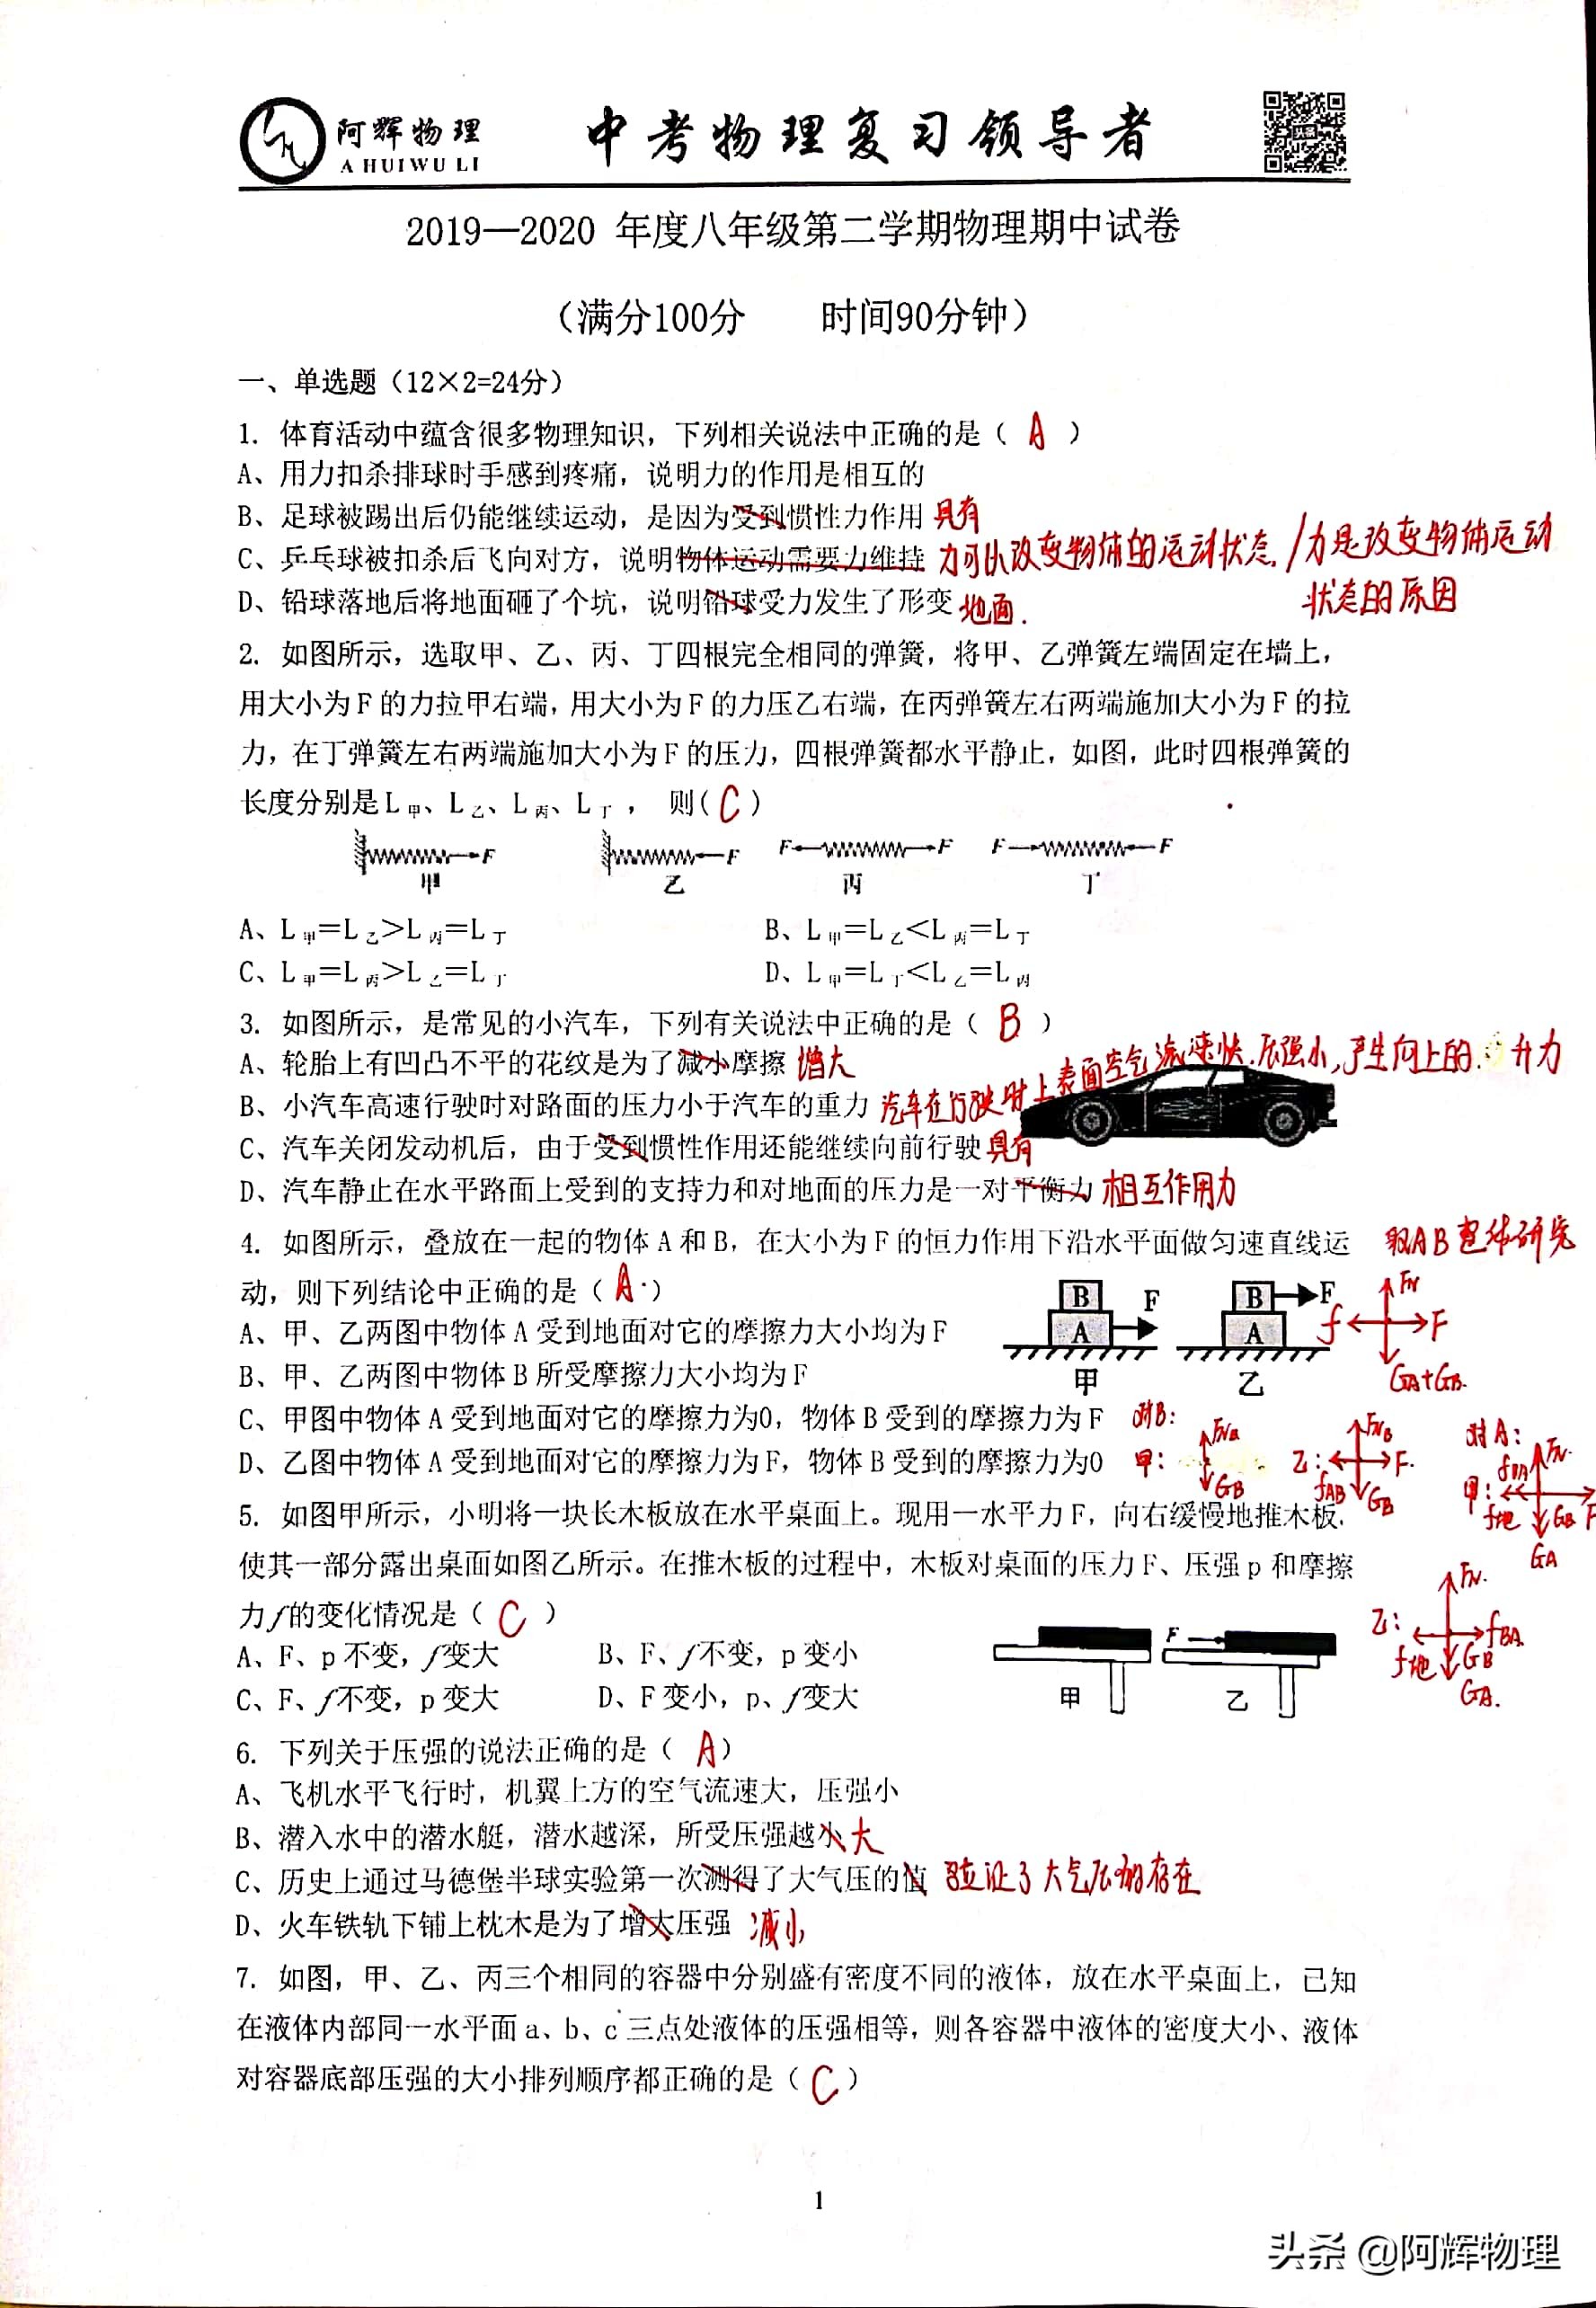 阿辉物理
A HUIWU LI
中考物理复习领导者
2019—2020 年度八年级第二学期物理期中试卷
（满分100分 时间90分钟）
一、单选题（12×2=24分）
1. 体育活动中蕴含很多物理知识，下列相关说法中正确的是（ A ）
A、用力扣杀排球时手感到疼痛，说明力的作用是相互的
B、足球被踢出后仍能继续运动，是因为受到惯性力作用 具有
C、乒乓球被扣杀后飞向对方，说明物体运动需要力维持 力可以改变物体的运动状态./力是改变物体运动
状态的原因
D、铅球落地后将地面砸了个坑，说明铅球受力发生了形变 地面.
2. 如图所示，选取甲、乙、丙、丁四根完全相同的弹簧，将甲、乙弹簧左端固定在墙上，
用大小为 F 的力拉甲右端，用大小为 F 的力压乙右端，在丙弹簧左右两端施加大小为 F 的拉
力，在丁弹簧左右两端施加大小为 F 的压力，四根弹簧都水平静止，如图，此时四根弹簧的
长度分别是 L甲、L乙、L丙、L丁， 则( C )
F F F F F F
甲 乙 丙 丁
A、L甲＝L乙＞L丙＝L丁 B、L甲＝L乙＜L丙＝L丁
C、L甲＝L丙＞L乙＝L丁 D、L甲＝L丁＜L乙＝L丙
3. 如图所示，是常见的小汽车，下列有关说法中正确的是（ B ）
A、轮胎上有凹凸不平的花纹是为了减小摩擦 增大
B、小汽车高速行驶时对路面的压力小于汽车的重力 汽车在行驶时上表面空气流速快.压强小,产生向上的升力
C、汽车关闭发动机后，由于受到惯性作用还能继续向前行驶 具有
D、汽车静止在水平路面上受到的支持力和对地面的压力是一对平衡力 相互作用力
4. 如图所示，叠放在一起的物体 A 和 B，在大小为 F 的恒力作用下沿水平面做匀速直线运 取AB整体研究
动，则下列结论中正确的是（ A ）
B F B F
A A
甲 乙
FN
f F
GA+GB.
A、甲、乙两图中物体 A 受到地面对它的摩擦力大小均为 F
B、甲、乙两图中物体 B 所受摩擦力大小均为 F
C、甲图中物体 A 受到地面对它的摩擦力为0，物体 B 受到的摩擦力为 F
D、乙图中物体 A 受到地面对它的摩擦力为 F，物体 B 受到的摩擦力为0
对B:
甲: FNB GB
乙: FNB F. fAB GB
对A:
甲: fBA FN. f地 GB F GA
5. 如图甲所示，小明将一块长木板放在水平桌面上。现用一水平力 F，向右缓慢地推木板，
使其一部分露出桌面如图乙所示。在推木板的过程中，木板对桌面的压力 F、压强 p 和摩擦
力 f 的变化情况是（ C ）
乙: FN. fBA. f地 GB GA.
A、F、p 不变，f 变大 B、F、f 不变，p 变小
C、F、f 不变，p 变大 D、F 变小，p、f 变大
F
甲 乙
6. 下列关于压强的说法正确的是（ A ）
A、飞机水平飞行时，机翼上方的空气流速大，压强小
B、潜入水中的潜水艇，潜水越深，所受压强越小 大
C、历史上通过马德堡半球实验第一次测得了大气压的值 验证了大气压的存在
D、火车铁轨下铺上枕木是为了增大压强 减小
7. 如图，甲、乙、丙三个相同的容器中分别盛有密度不同的液体，放在水平桌面上，已知
在液体内部同一水平面 a、b、c 三点处液体的压强相等，则各容器中液体的密度大小、液体
对容器底部压强的大小排列顺序都正确的是（ C ）
1
头条 @阿辉物理